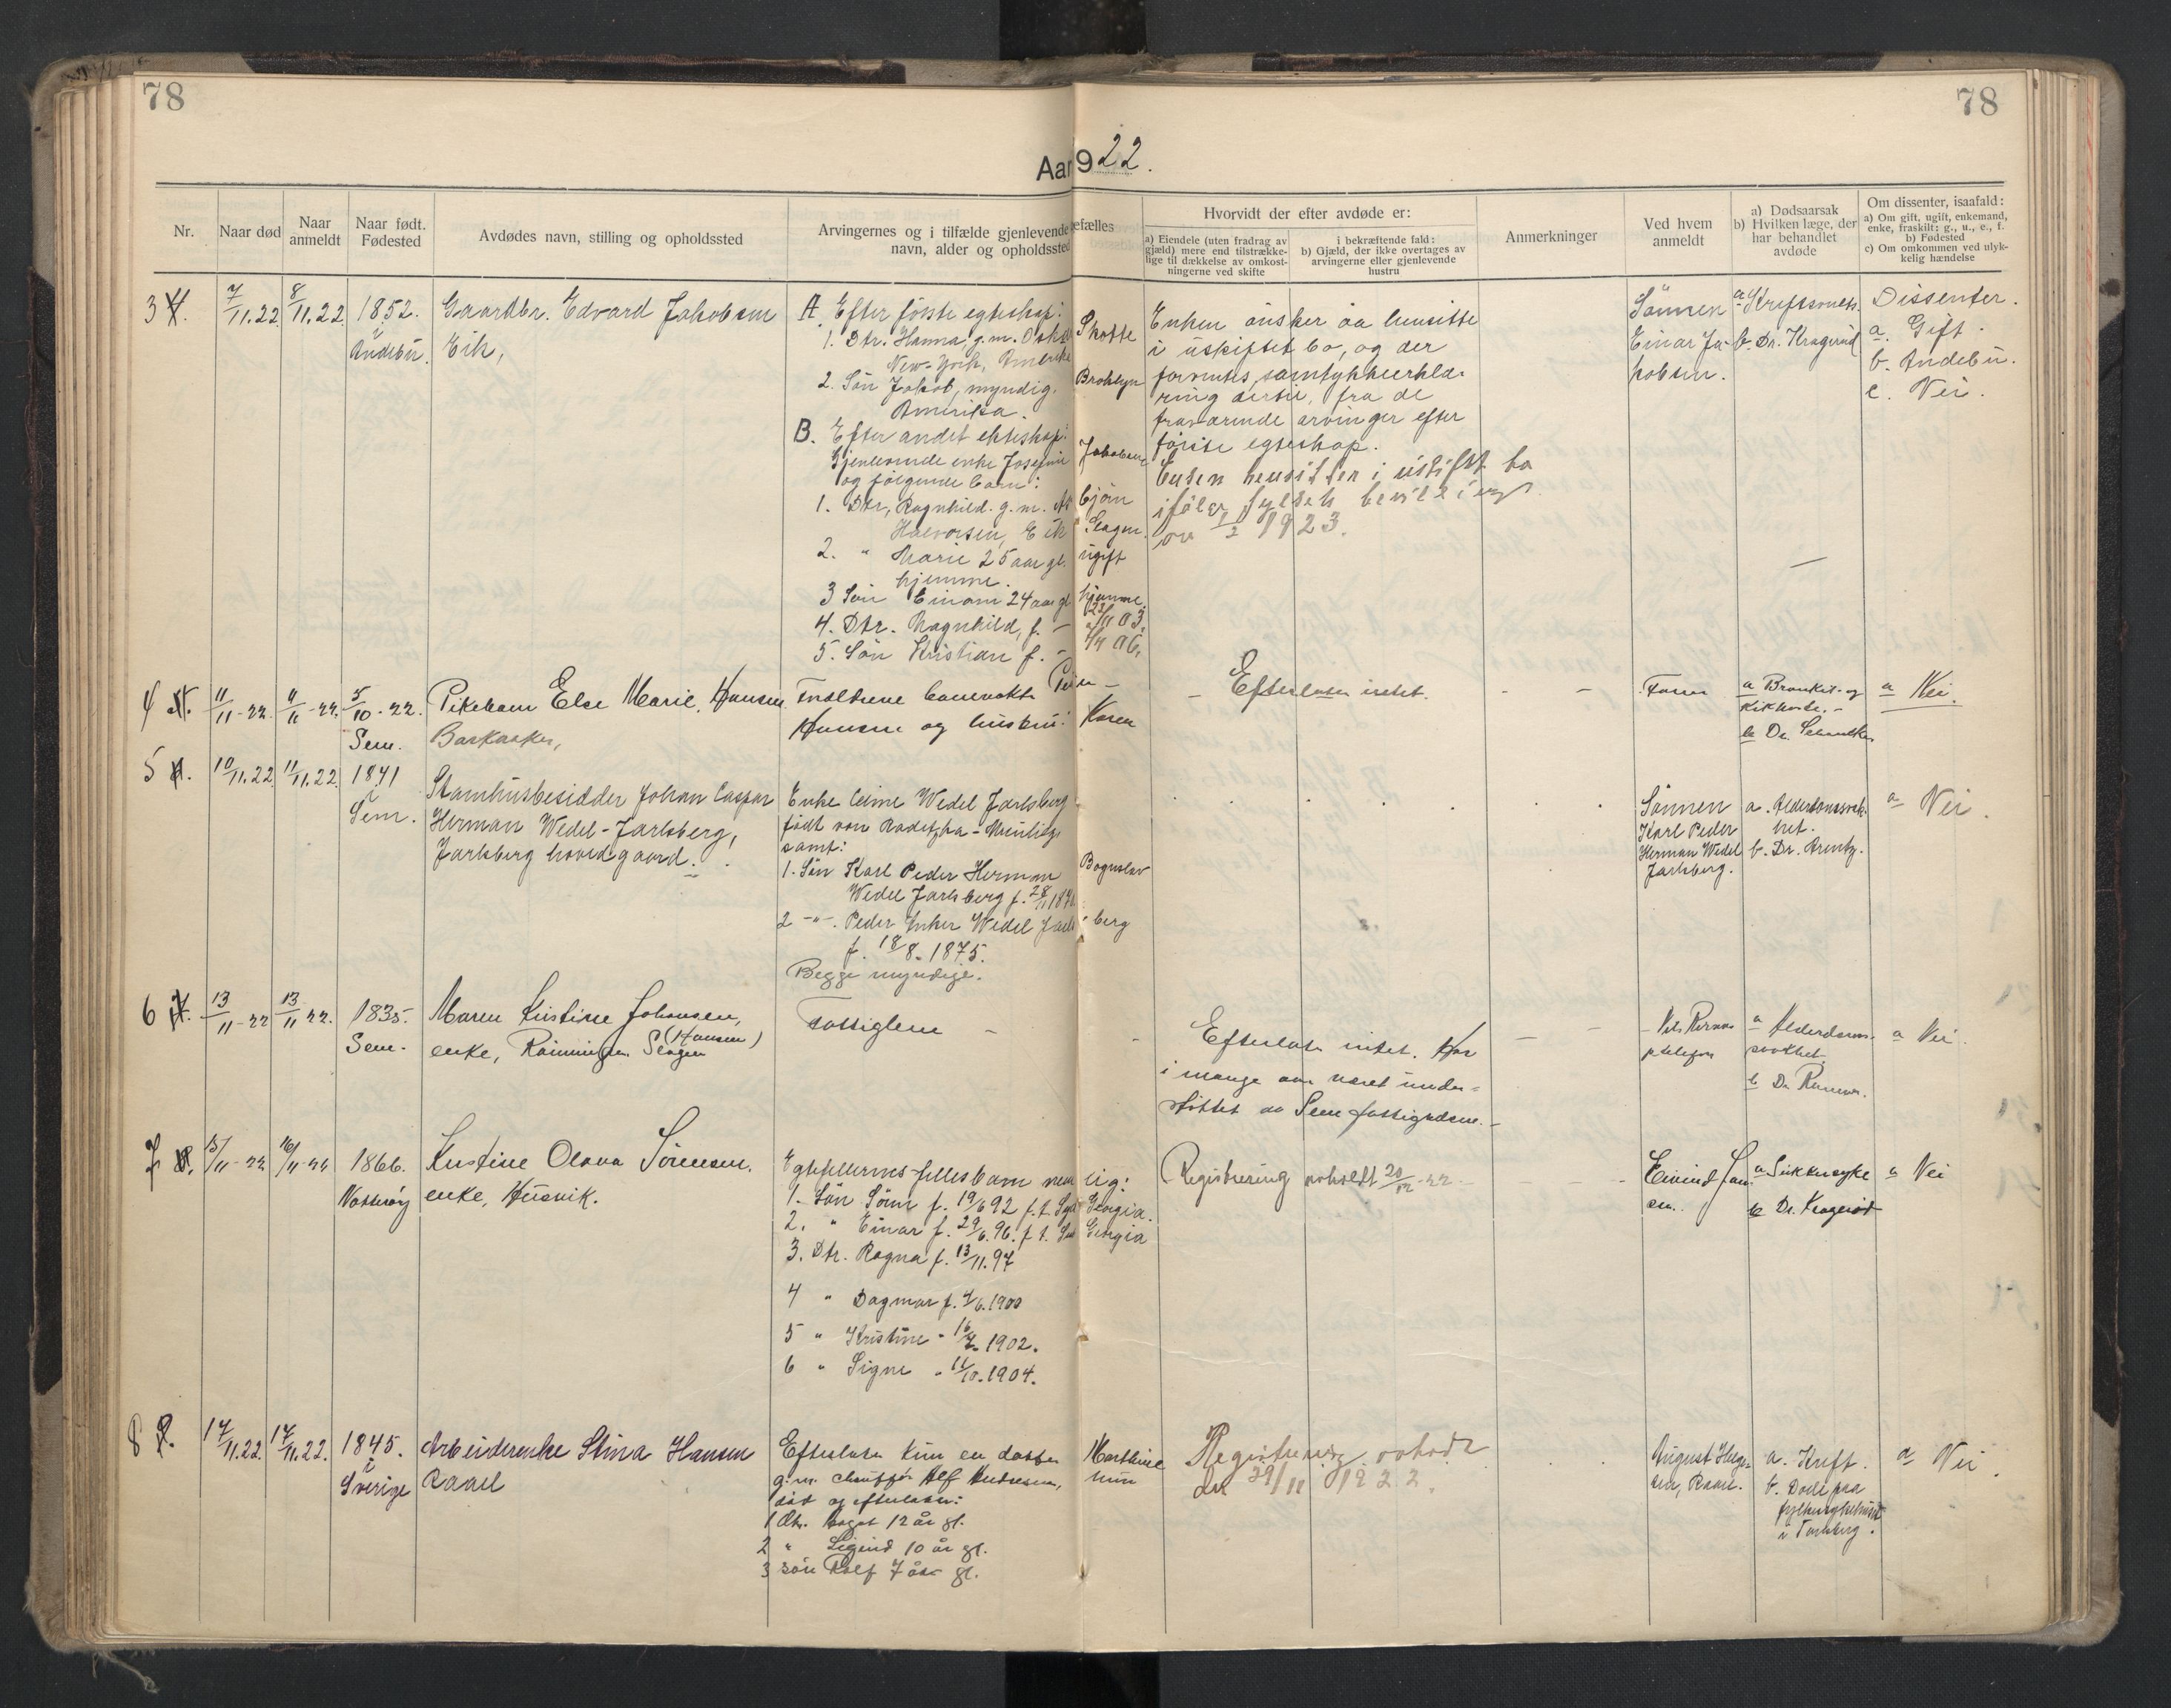 78
78
Aar 1922.
Nr.
Naar død
Naar anmeldt
Naar født. Fødested
Avdødes navn, stilling og opholdssted
Arvingernes og i tilfælde gjenlevende
efælles
navn, alder og opholdssted
Hvorvidt der efter avdøde er:
a) Eiendele (uten fradrag av
gjæld) mere end tilstrække-
lige til dækkelse av omkost-
ningerne ved skifte
i bekræftende fald:
b) Gjæld, der ikke overtages av
arvingerne eller gjenlevende
hustru
Anmerkninger
Ved hvem
anmeldt
a) Dødsaarsak
b) Hvilken læge, der
har behandlet
avdøde
Om dissenter, isaafald:
a) Om gift, ugift, enkemand,
enke, fraskilt: g., u., e., f.
b) Fødested
c) Om omkommen ved ulyk-
kelig hændelse
3
7/11.22
8/11.22
1852.
i
Andebu.
Gaardbr. Edvard Jakobsen
Eik,
A. Efter første egteskap:
1. Dtr. Hanna, g.m.
Skotte
New-York, Amerika
2. Søn Jakob, myndig, Broklyn
Amerika.
B. Efter andet ekteskap:
Gjenlevende enke Josefine Jakobsen
og følgende barn:
1. Dtr, Ragnhild. g.m. bjørn
Halvorsen, Eik Slagen.
2. " Marie 25 aar gl. ugift
hjemme.
3 Søn Einar 24 aar gl hjemme.
4. Dtr. Magnhild, f. 03.
5. Søn Kristian f. 06.
Enken ønsker aa hensitte
i uskiftet bo, og der
forventes samtykkeerklæ-
ring dertil, fra de
fraværende arvinger efter
første egteskap.
Enken hensitter i uskiftet bo
ifølge bevilling
av 1/2 1923.
Sønnen
Einar Ja-
kobsen.
a.
b. Dr. Kragerud
Dissenter.
a. Gift.
b. Andebu.
c. Nei.
4
11/11-22
11/11-22.
5/10-22.
Sem.
Pikebarn Else Marie Hansen
Barkaaker,
Forældrene banevokter
Hansen og hustru: Karen
Efterlater intet.
Faren
a Bronkit- og
kikhoste.-
b Dr.
a Nei.
5
10/11.22
11/11.22
1841
i
Sem.
Stamhusbesidder Johan Caspar
Herman Wedel-Jarlsberg,
Jarlsberg hovedgaard.
Enke Wedel Jarlsberg
født von
samt:
1. Søn Karl Peder Herman Boguslav
Wedel Jarlsberg f. 28/11
2 -"-. Peder Anker Wedel Jarlsberg
f. 18/8. 1875.
Begge myndige.
Sønnen
Karl Peder
Herman Wedel
Jarlsberg.
a. Alderdomssvak-
het.
b. Dr. Arentz.
a Nei.
6
13/11-22
13/11 22.
1835.
Sem.
Maren Kristine Johansen,
(Hansen)
enke, Slagen
Fattiglem -
Efterlater intet. Har
i mange aar været under-
støttet av Sem fattigvæsen.-
Nils
pr telefon
a Alderdoms-
svakhet
b Dr
a Nei.
7
15/11-22
16/11-22
1866.
Nøtterøy
Kristine Olava Sørensen,
enke, Husvik.
Egtefellernes fellesbarn nemlig:
1. Søn Søren f. 19/6 92 f.t. Syd Georgia.
2. " Einar f. 29/6. 96. f t. Syd Georgia
3. Dtr. Ragna f. 13/11. 97
4 " Dagmar f. 4/6. 1900
5 " Kristine " 16/7. 1902.
6 " Signe " 11/10. 1904.
Registrering avholdt 20/12-22.
Eivind
sen.
a Sukkersyke
b Dr. Kragerud
a Nei
8
17/11.22.
17/11.22.
1845.
i
Sverige
Arbeiderenke Stina Hansen
Raael
Efterlater kun en datter Marthine
g.m. chauffør Alf Andresen, hun
død og efterlater:
1 Dtr. 12 år gl.
2 " 10 år gl.
3 søn Rolf 7 år gl.
Registrering avholdt
den 29/11 1922.
August
sen, Raael.
a. Kreft.
b. Døde paa
fylkessykehuset
i Tønsberg.
a Nei.